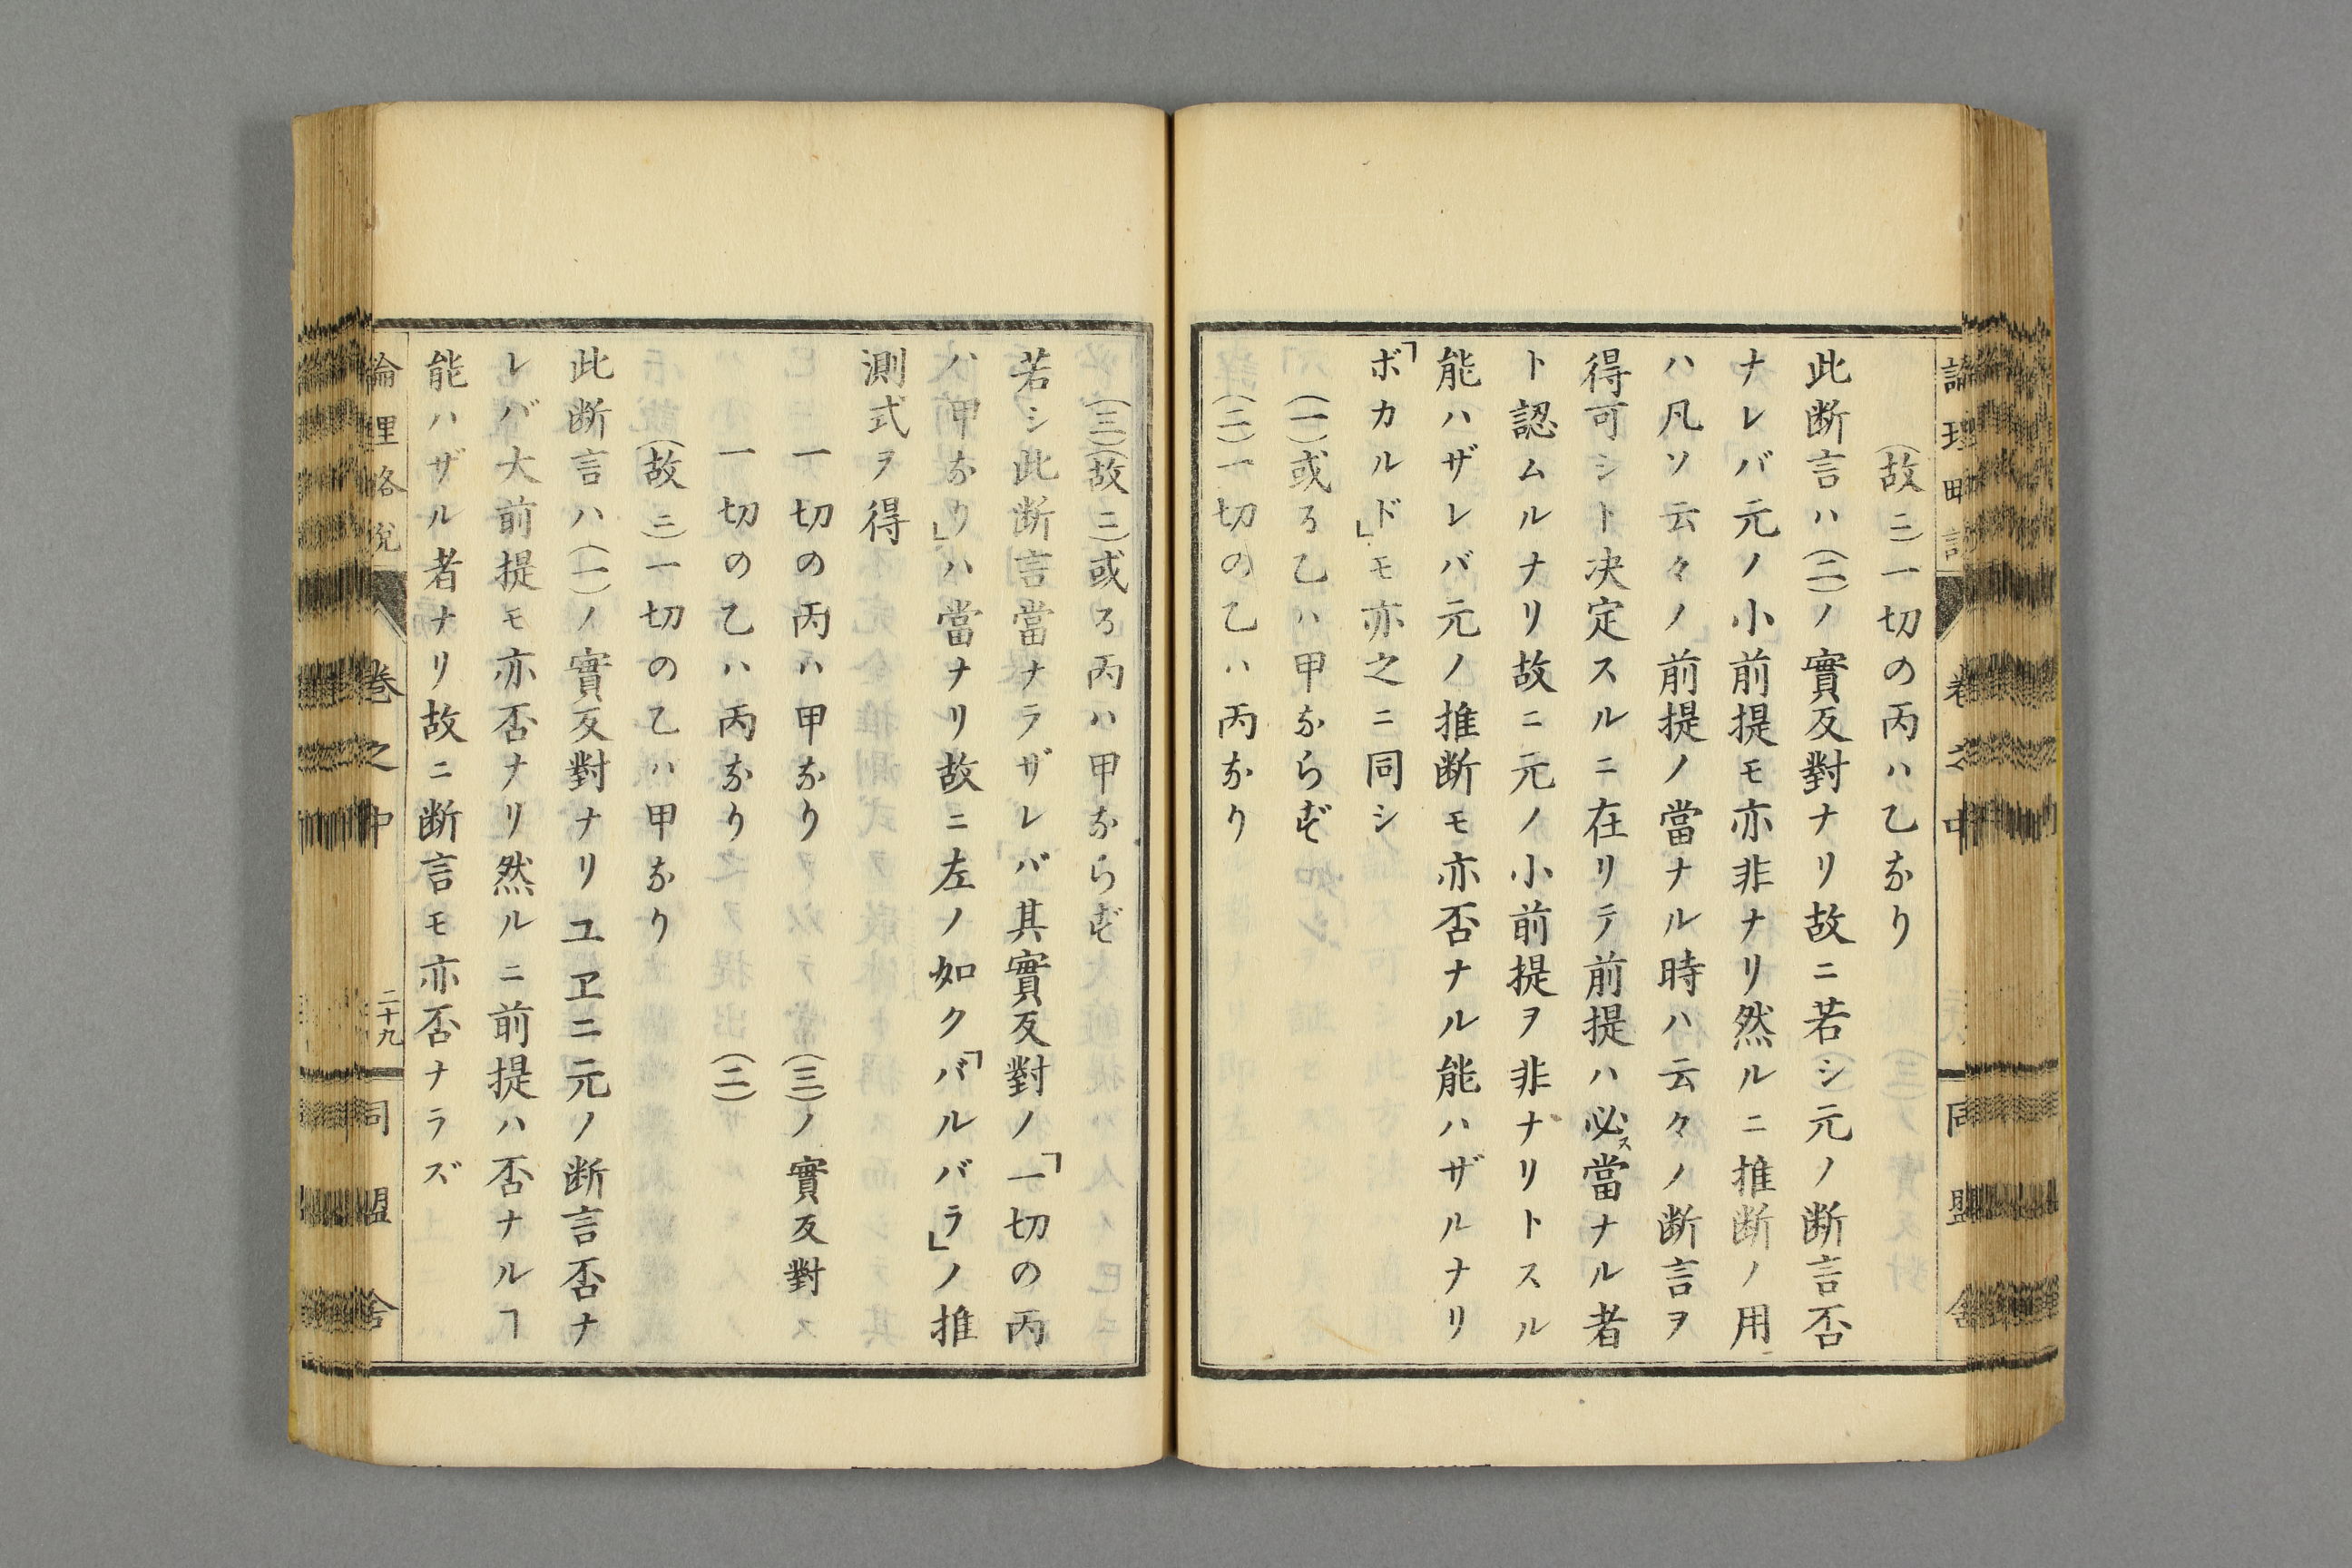 (故ニ)一切の丙ハ乙なり
此断言ハ(二)ノ實反對ナリ故ニ若シ元ノ断言否
ナレバ元ノ小前提モ亦非ナリ然ルニ推断ノ用
ハ凡ソ云々ノ前提ノ當ナル時ハ云々ノ断言ヲ
得可シト决定スルニ在リテ前提ハ必ス當ナル者
ト認ムルナリ故ニ元ノ小前提ヲ非ナリトスル
能ハザレバ元ノ推断モ亦否ナル能ハザルナリ
「ボカルド」モ亦之ニ同シ
(一)或る乙ハ甲ならず
(二)一切の乙ハ丙なり
(三)(故ニ)或る丙ハ甲ならず
若シ此断言當ナラザレバ其實反對ノ「一切の丙
ハ甲なり」ハ當ナリ故ニ左ノ如ク「バルバラ」ノ推
測式ヲ得
一切の丙ハ甲なり (三)ノ實反對ス
一切の乙ハ丙なり (二)
(故ニ)一切の乙ハ甲なり
此断言ハ(一)ノ實反對ナリユヱニ元ノ断言否ナ
レバ大前提モ亦否ナリ然ルニ前提ハ否ナルヿ
能ハザル者ナリ故ニ断言モ亦否ナラズ
論理略説 卷之中 二十九 同盟舎